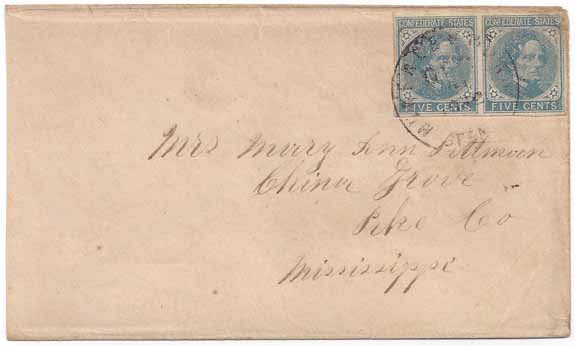 CONFEDERATE STATES CONFEDERATE STATES
FIVE CENTS FIVE CENTS
Mrs Mary Ann Pittman
China Grove
Pike Co
Mississippi